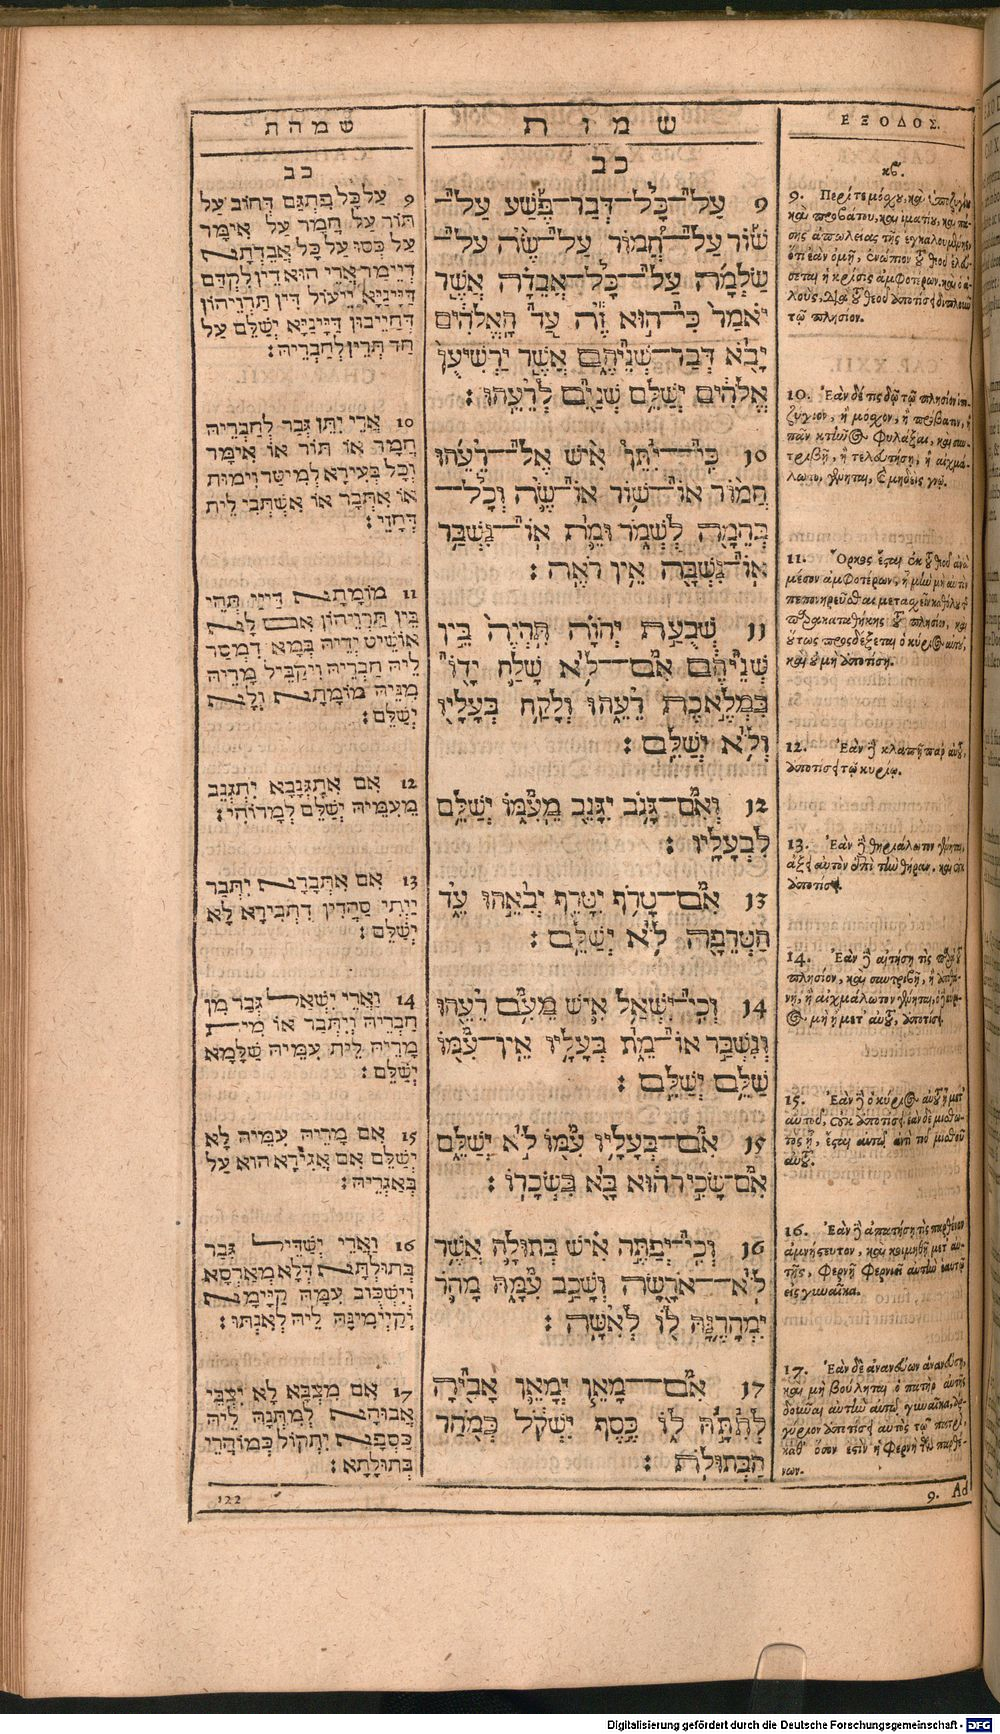 שמהת
כב
9 עַל כָּל פִּתְגַּם דְּחוֹב עַל
תּוֹר עַל חֲמָר עַל אִימָּר
עַל כְּסוּ עַל כָּל אֲבֵדְתָּא
דְּיֵימַר אֲרֵי הוּא דֵין לִקְדָם
דַּיָּינַיָּא יֵיעוֹל דִּין תַּרְוֵיהוֹן
דְּחַיְיבוּן דַּיָּינַיָּא יְשַׁלֵּם עַל
חַד תְּרֵין לְחַבְרֵיהּ׃
10 אֲרֵי יִתֵּן גְּבַר לְחַבְרֵיהּ
חֲמָר אוֹ תּוֹר אוֹ אִימָּר
וְכָל בְּעִירָא לְמִיטַּר וִימוּת
אוֹ אִתְּבַר אוֹ אִשְׁתְּבִי לֵית
דְּחָזֵי׃
11 מוֹמָתָא דַּיְיָ תְּהֵי
בֵּין תַּרְוֵיהוֹן אִם לָא
אוֹשִׁיט יְדֵיהּ בְּמָא דִמְסַר
לֵיהּ חַבְרֵיהּ וִיקַבֵּיל מָרֵיהּ
מִנֵּיהּ מוֹמָתָא וְלָא
יְשַׁלֵּם׃
12 אִם אִתְגְּנָבָא יִתְגְּנֵב
מֵעִמֵּיהּ יְשַׁלֵּם לְמָרוֹהִי׃
13 אִם אִתְּבָרָא יִתְּבַר
יַיְתֵי סָהֲדִין דִּתְבִירָא לָא
יְשַׁלֵּם׃
14 וַאֲרֵי יִשְׁאַל גְּבַר מִן
חַבְרֵיהּ וְיִתְּבַר אוֹ מִית
מָרֵיהּ לֵית עִמֵּיהּ שַׁלָּמָא
יְשַׁלֵּם׃
15 אִם מָרֵיהּ עִמֵּיהּ לָא
יְשַׁלֵּם אִם אֲגִירָא הוּא עַל
בְּאַגְרֵיהּ׃
16 וַאֲרֵי יְשַׁדֵּיל גְּבַר
בְּתוּלְתָּא דְּלָא מְאָרְסָא
וְיִשְׁכּוּב עִמַּהּ קַיָּימָא
יְקַיְּימִינַּהּ לֵיהּ לְאִנְתּוּ׃
17 אִם מִצְבָּא לָא יִצְבֵּי
אֲבוּהָא לְמִתְּנַהּ לֵיהּ
כַּסְפָּא יִתְקוֹל כְּמוֹהֲרֵי
בְּתוּלָתָא׃
122
שמות
כב
9 עַל־כָּל־דְּבַר־פֶּשַׁע עַל־
שׁוֹר עַל־חֲמוֹר עַל־שֶׂה עַל־
שַׂלְמָה עַל־כָּל־אֲבֵדָה אֲשֶׁר
יֹאמַר כִּי־הוּא זֶה עַד הָאֱלֹהִים
יָבֹא דְּבַר־שְׁנֵיהֶם אֲשֶׁר יַרְשִׁיעֻן
אֱלֹהִים יְשַׁלֵּם שְׁנַיִם לְרֵעֵהוּ׃
10 כִּי־יִתֵּן אִישׁ אֶל־רֵעֵהוּ
חֲמוֹר אוֹ־שׁוֹר אוֹ־שֶׂה וְכָל־
בְּהֵמָה לִשְׁמֹר וּמֵת אוֹ־נִשְׁבַּר
אוֹ־נִשְׁבָּה אֵין רֹאֶה׃
11 שְׁבֻעַת יְהוָֹה תִּהְיֶה בֵּין
שְׁנֵיהֶם אִם־לֹא שָׁלַח יָדוֹ
בִּמְלֶאכֶת רֵעֵהוּ וְלָקַח בְּעָלָיו
וְלֹא יְשַׁלֵּם׃
12 וְאִם־גָּנֹב יִגָּנֵב מֵעִמּוֹ יְשַׁלֵּם
לִבְעָלָיו׃
13 אִם־טָרֹף יִטָּרֵף יְבִאֵהוּ עֵד
הַטְּרֵפָה לֹא יְשַׁלֵּם׃
14 וְכִי־יִשְׁאַל אִישׁ מֵעִם רֵעֵהוּ
וְנִשְׁבַּר אוֹ־מֵת בְּעָלָיו אֵין־עִמּוֹ
שַׁלֵּם יְשַׁלֵּם׃
15 אִם־בְּעָלָיו עִמּוֹ לֹא יְשַׁלֵּם
אִם־שָׂכִיר הוּא בָּא בִּשְׂכָרוֹ׃
16 וְכִי־יְפַתֶּה אִישׁ בְּתוּלָה אֲשֶׁר
לֹא־אֹרָשָׂה וְשָׁכַב עִמָּהּ מָהֹר
יִמְהָרֶנָּה לּוֹ לְאִשָּׁה׃
17 אִם־מָאֵן יְמָאֵן אָבִיהָ
לְתִתָּהּ לוֹ כֶּסֶף יִשְׁקֹל כְּמֹהַר
הַבְּתוּלֹת׃
ΕΞΟΔΟΣ.
κβ.
9. Περί τε μόσχου, καὶ ὑποζυγίου
καὶ προβάτου, καὶ ἱματίου, καὶ πά-
σης ἀπωλείας τῆς ἐγκαλουμένης,
ὅτι ἐὰν ὁ μὴ, ἐνώπιον τοῦ θεοῦ ἐλεύ-
σεται ἡ κρίσις ἀμφοτέρων, καὶ ὁ ἁ-
λοὺς, διὰ τοῦ θεοῦ ἀποτίσει διπλοῦν
τῷ πλησίον.
10. Ἐὰν δέ τις δῷ τῷ πλησίον ὑπο-
ζύγιον, ἢ μόσχον, ἢ πρόβατον, ἢ
πᾶν κτῆνος φυλάξαι, καὶ συν-
τριβῇ, ἢ τελευτήσῃ, ἢ αἰχμά-
λωτον γένηται, καὶ μηδεὶς γνῷ.
11. Ὅρκος ἔσται ἐκ τοῦ θεοῦ ἀνὰ
μέσον ἀμφοτέρων, ἦ μὴν μὴ αὐτὸν
πεπονηρεῦσθαι μετασχεῖν καθόλου τῆς
παρακαταθήκης τοῦ πλησίον, καὶ
οὕτως προσδέξεται ὁ κύριος αὐτοῦ,
καὶ οὐ μὴ ἀποτίσῃ.
12. Ἐὰν δὲ κλαπῇ παρ' αὐτοῦ,
ἀποτίσει τῷ κυρίῳ.
13. Ἐὰν δὲ θηριάλωτον γένηται,
ἄξει αὐτὸν ἐπὶ τὴν θήραν, καὶ οὐκ
ἀποτίσει.
14. Ἐὰν δὲ αἰτήσῃ τις παρὰ τοῦ
πλησίον, καὶ συντριβῇ, ἢ ἀποθά-
νῃ, ἢ αἰχμάλωτον γένηται, ὁ κύρι-
ος μὴ ᾖ μετ' αὐτοῦ, ἀποτίσει.
15. Ἐὰν δὲ ὁ κύριος αὐτοῦ ᾖ μετ'
αὐτοῦ, οὐκ ἀποτίσει· ἐὰν δὲ μισθω-
τὸς ᾖ, ἔσται αὐτῷ ἀντὶ τοῦ μισθοῦ
αὐτοῦ.
16. Ἐὰν δὲ ἀπατήσῃ τις παρθένον
ἀμνήστευτον, καὶ κοιμηθῇ μετ' αὐ-
τῆς, φερνῇ φερνιεῖ αὐτὴν ἑαυτῷ
εἰς γυναῖκα.
17. Ἐὰν δὲ ἀνανεύων ἀνανεύσῃ,
καὶ μὴ βούληται ὁ πατὴρ αὐτῆς
δοῦναι αὐτὴν αὐτῷ γυναῖκα, ἀρ-
γύριον ἀποτίσει αὐτῆς τῷ πατρὶ,
καθ' ὅσον ἐστὶν ἡ φερνὴ τῶν παρθέ-
νων.
9. Ad
Digitalisierung gefördert durch die Deutsche Forschungsgemeinschaft - DFG